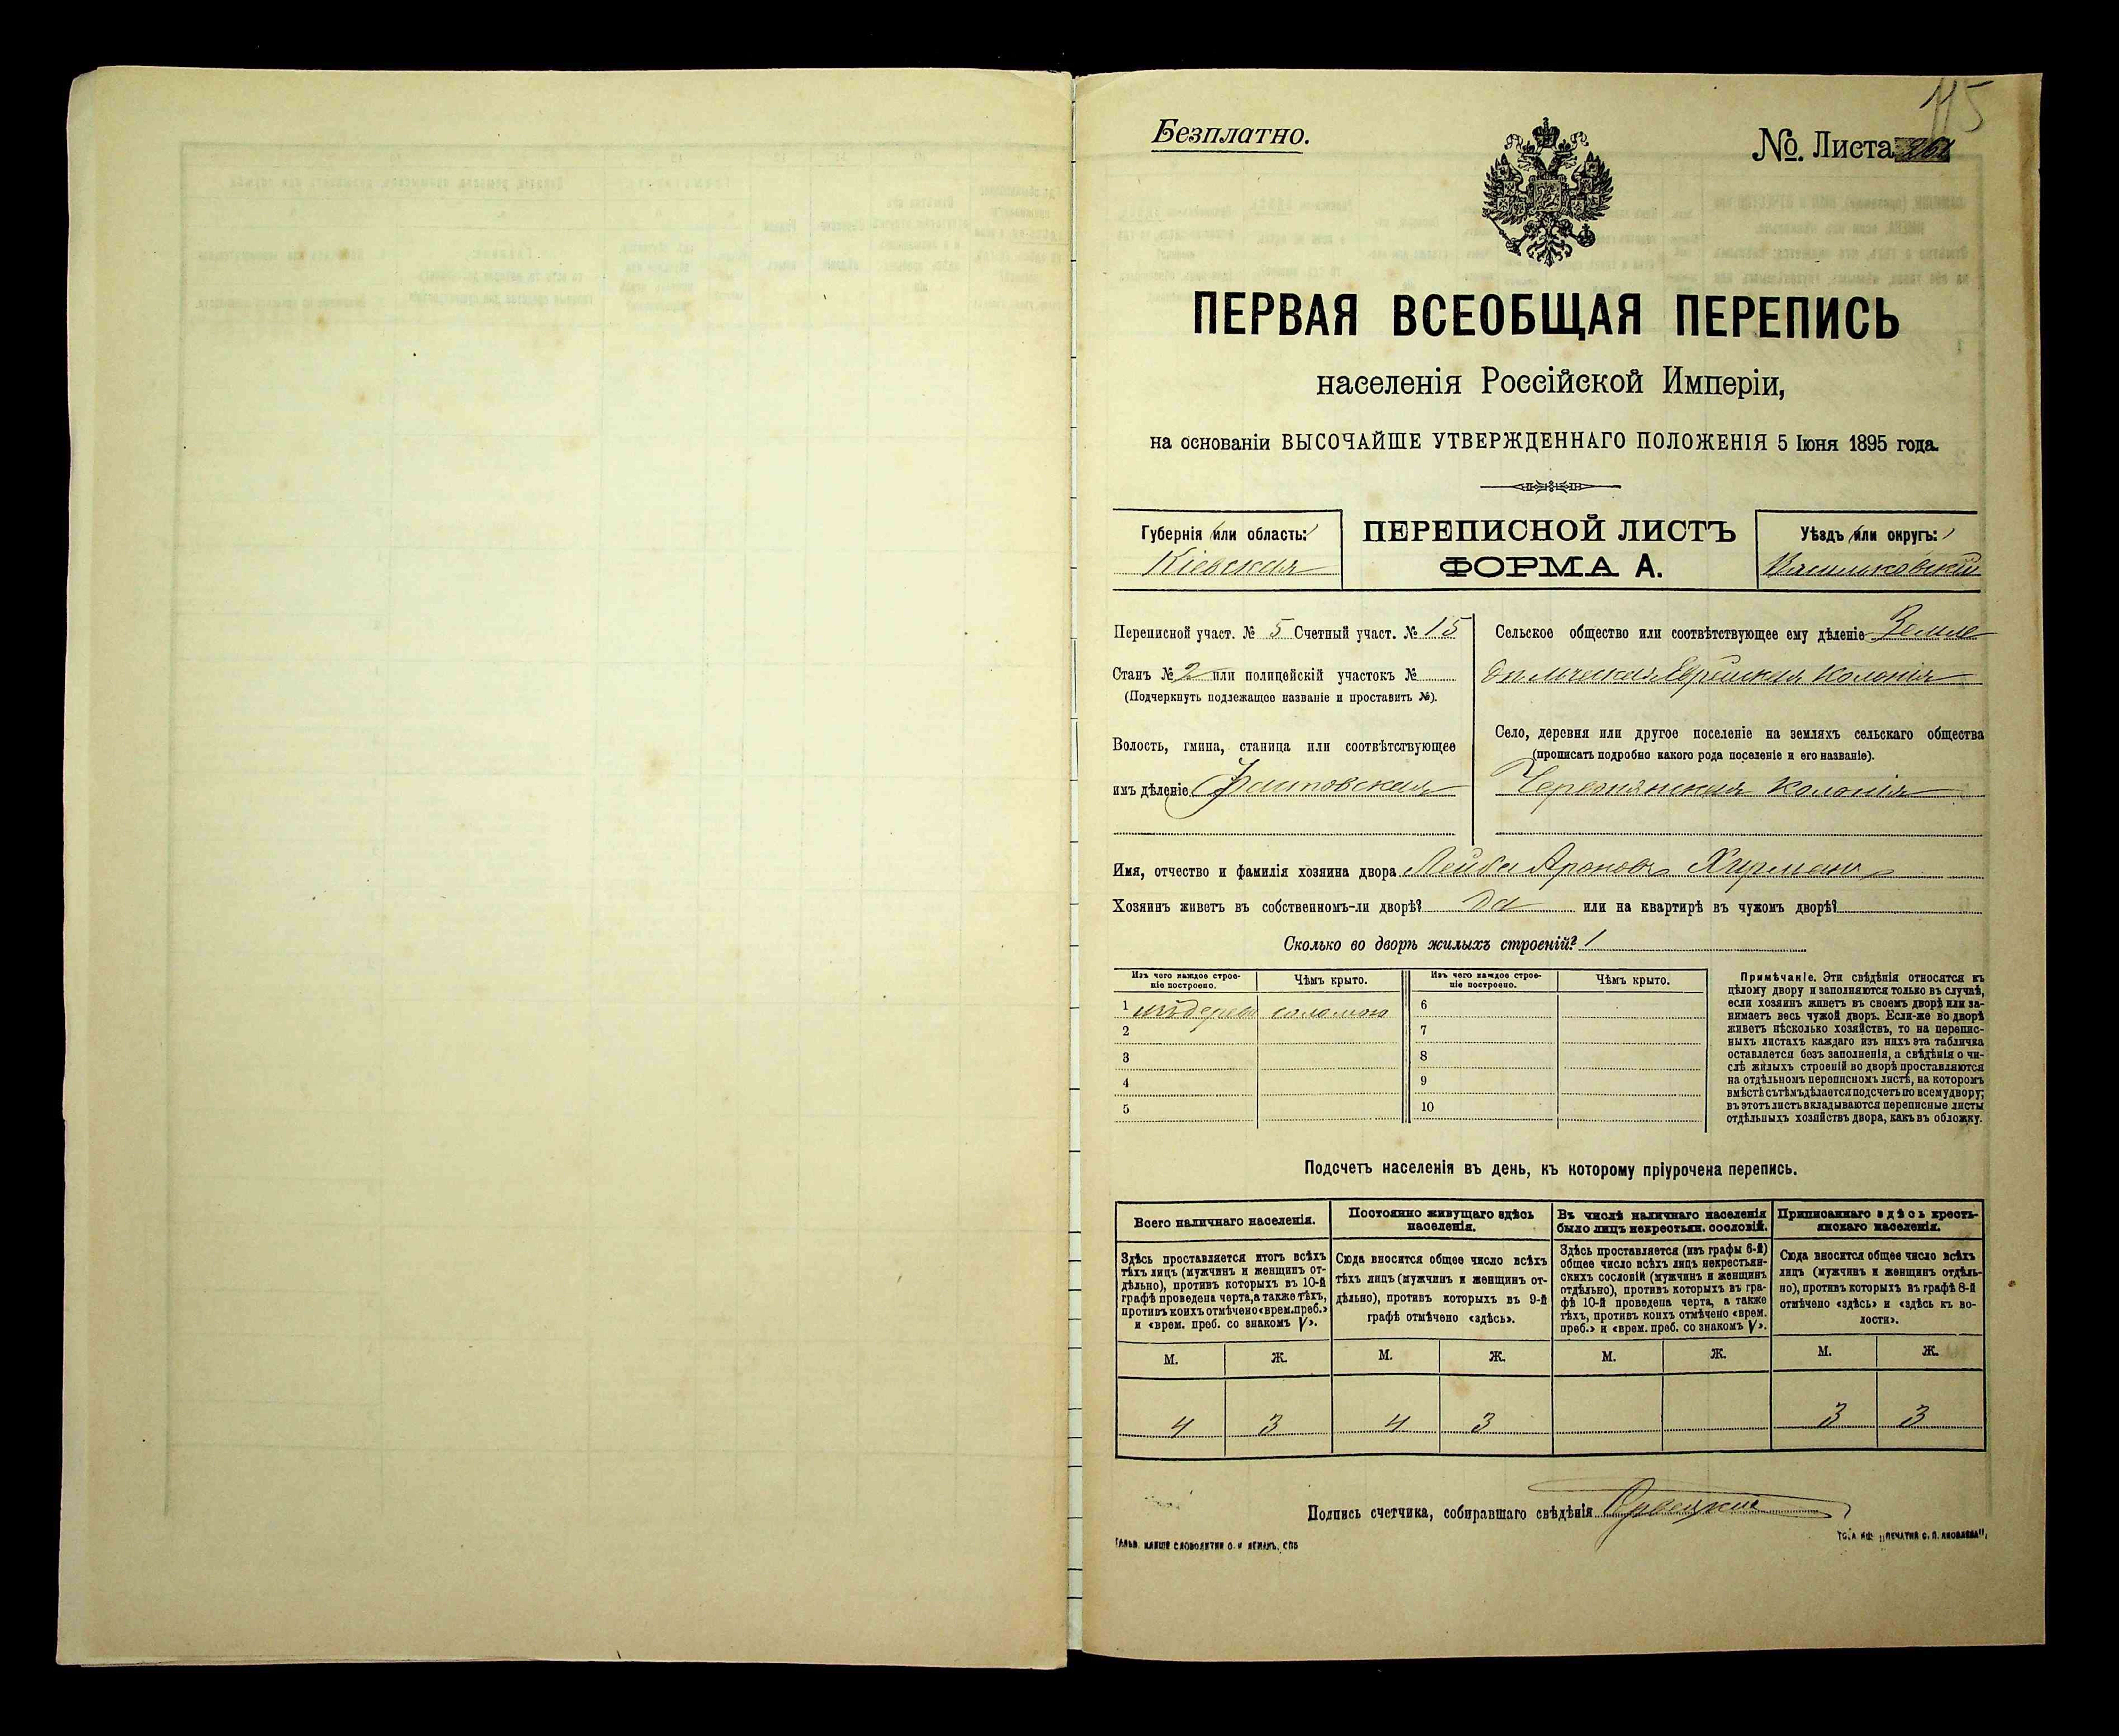 115
Безплатно.
№. Листа
ПЕРВАЯ ВСЕОБЩАЯ ПЕРЕПИСЬ
населенія Россійской Имперіи,
на основаніи ВЫСОЧАЙШЕ УТВЕРЖДЕННАГО ПОЛОЖЕНІЯ 5 Іюня 1895 года.
Губернія или область:
Кіевская
ПЕРЕПИСНОЙ ЛИСТЪ
ФОРМА А.
Уѣздъ или округъ:
Васильковскій
Переписной участ. № 5 Счетный участ. № 15
Станъ № 2 или полицейскій участокъ №
(Подчеркнуть подлежащее названіе и проставить №).
Волость, гмина, станица или соотвѣтствующее
имъ дѣленіе Фастовская
Сельское общество или соотвѣтствующее ему дѣленіе Земле
дѣльческая Еврейская Колонія
Село, деревня или другое поселеніе на земляхъ сельскаго общества
(прописать подробно какого рода поселеніе и его названіе).
Червлянская Колонія
Имя, отчество и фамилія хозяина двора Лейба Ароновъ Хирманъ
Хозяинъ живетъ въ собственномъ-ли дворѣ? да или на квартирѣ въ чужомъ дворѣ?
Сколько во дворѣ жилыхъ строеній? 1
Изъ чего каждое строе-
ніе построено.
Чѣмъ крыто.
Изъ чего каждое строе-
ніе построено.
Чѣмъ крыто.
1 изъ дерева соломою
2
3
4
5
6
7
8
9
10
Примѣчаніе. Эти свѣдѣнія относятся къ
цѣлому двору и заполняются только въ случаѣ,
если хозяинъ живетъ въ своемъ дворѣ или за-
нимаетъ весь чужой дворъ. Если-же во дворѣ
живетъ нѣсколько хозяйствъ, то на перепис-
ныхъ листахъ каждаго изъ нихъ эта табличка
оставляется безъ заполненія, а свѣдѣнія о чи-
слѣ жилыхъ строеній во дворѣ проставляются
на отдѣльномъ переписномъ листѣ, на которомъ
вмѣстѣ съ тѣмъ дѣлается подсчетъ по всему двору;
въ этотъ листъ вкладываются переписные листы
отдѣльныхъ хозяйствъ двора, какъ въ обложку.
Подсчетъ населенія въ день, къ которому пріурочена перепись.
Всего наличнаго населенія.
Здѣсь проставляется итогъ всѣхъ
тѣхъ лицъ (мужчинъ и женщинъ от-
дѣльно), противъ которыхъ въ 10-й
графѣ проведена черта, а также тѣхъ,
противъ коихъ отмѣчено «врем. преб.»
и «врем. преб. со знакомъ V».
Постоянно живущаго здѣсь
населенія.
Сюда вносится общее число всѣхъ
тѣхъ лицъ (мужчинъ и женщинъ от-
дѣльно), противъ которыхъ въ 9-й
графѣ отмѣчено «здѣсь».
Въ числѣ наличнаго населенія
было лицъ некрестьян. сословій.
Здѣсь проставляется (изъ графы 6-й)
общее число всѣхъ лицъ некрестьян-
скихъ сословій (мужчинъ и женщинъ
отдѣльно), противъ которыхъ въ гра-
фѣ 10-й проведена черта, а также
тѣхъ, противъ коихъ отмѣчено «врем.
преб.» и «врем. преб. со знакомъ V».
Приписаннаго здѣсь кресть-
янскаго населенія.
Сюда вносится общее число всѣхъ
лицъ (мужчинъ и женщинъ отдѣль-
но), противъ которыхъ въ графѣ 8-й
отмѣчено «здѣсь» и «здѣсь къ во-
лости».
М. Ж. М. Ж. М. Ж. М. Ж.
4 3 4 3 3 3
Подпись счетчика, собиравшаго свѣдѣнія